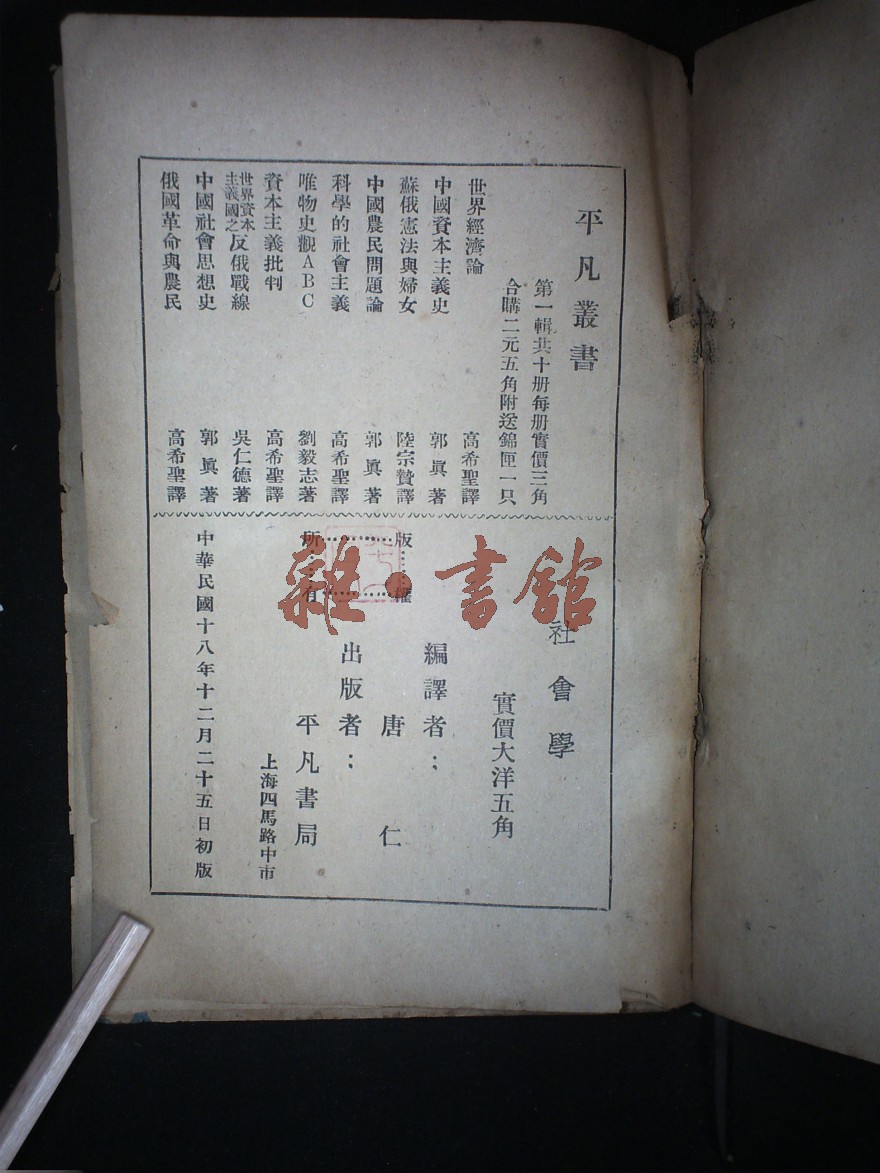 平凡叢書
第一輯共十册每册實價三角
合購二元五角附送錦匣一只
世界經濟論 高希聖譯
中國資本主義史 郭眞著
蘇俄憲法與婦女 陸宗贄譯
中國農民問題論 郭眞著
科學的社會主義 高希聖譯
唯物史觀ABC 劉毅志著
資本主義批判 高希聖譯
世界資本主義國之反俄戰線 吳仁德著
中國社會思想史 郭眞著
俄國革命與農民 高希聖譯
社會學
實價大洋五角
編譯者：
唐仁
出版者：
平凡書局
上海四馬路中市
版權
所有
中華民國十八年十二月二十五日初版
雜·書館